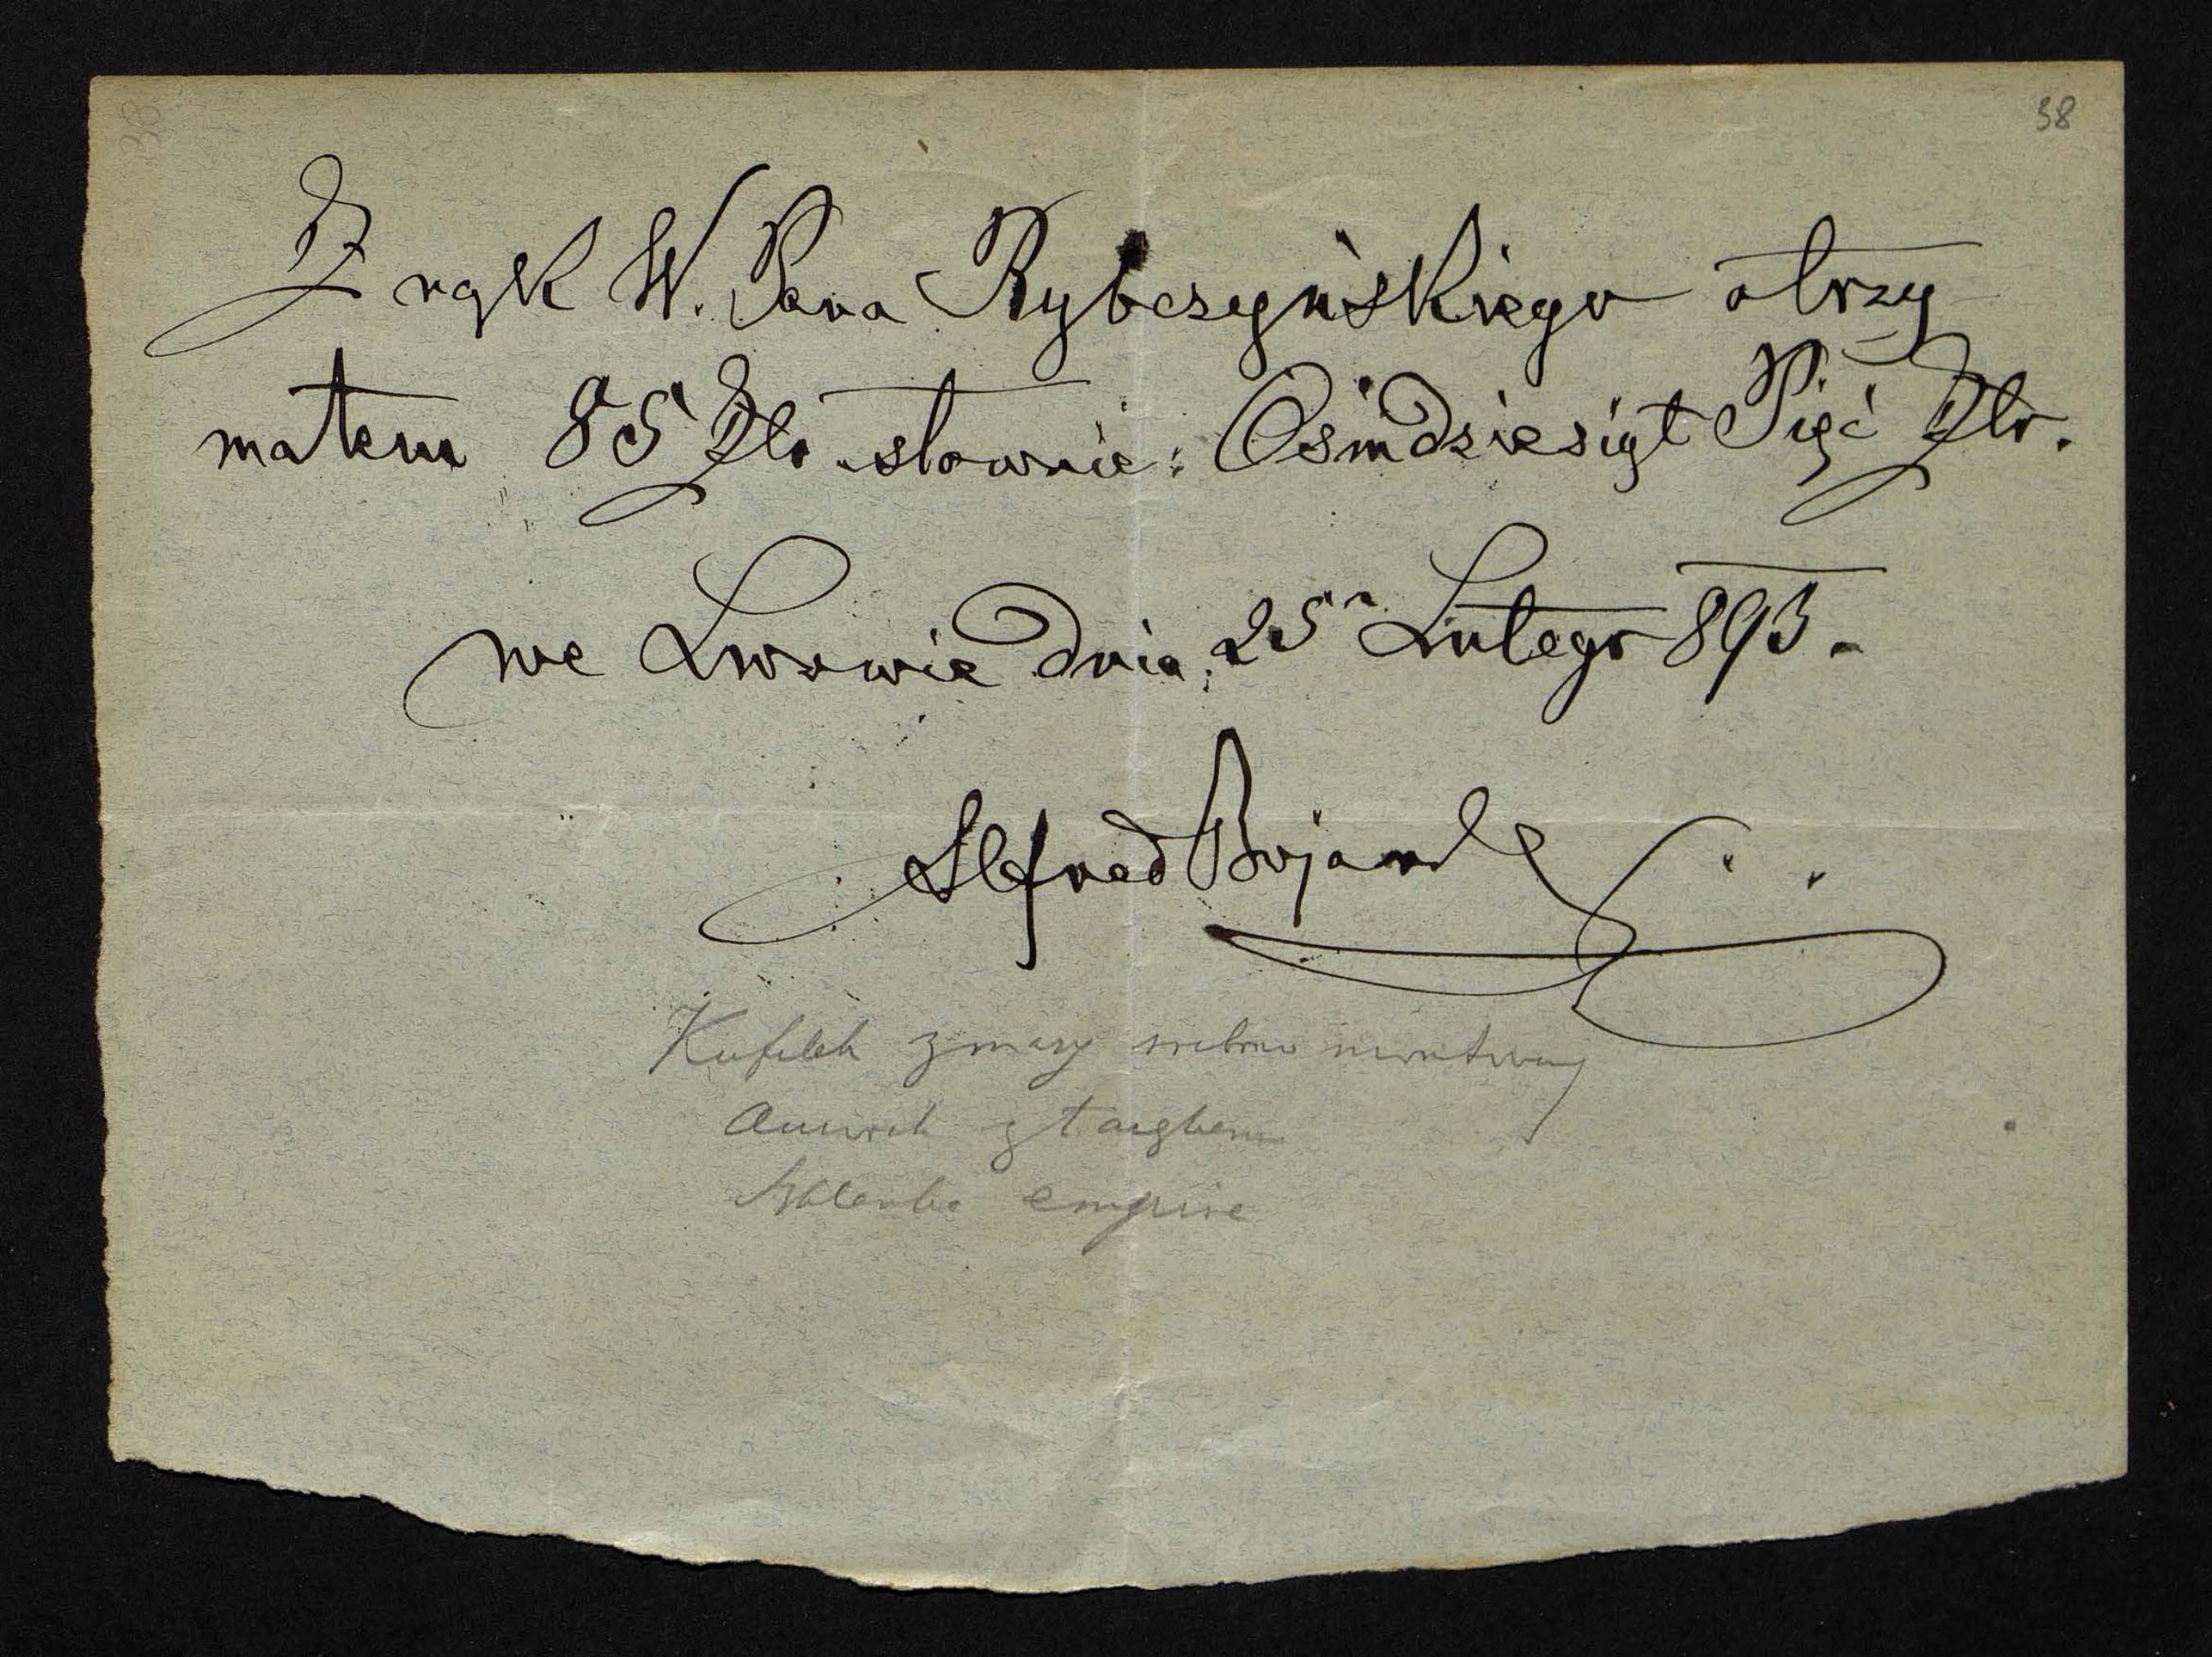 38
Z rąk W. Pana Rybczyńskiego otrzy
małem 85 Złr słownie: Ośmdziesiąt Pięć Złr.
we Lwowie dnia 25go Lutego 893.
Alfred Bojarski
Kufelek z masy srebrno
z
Szklanka empire